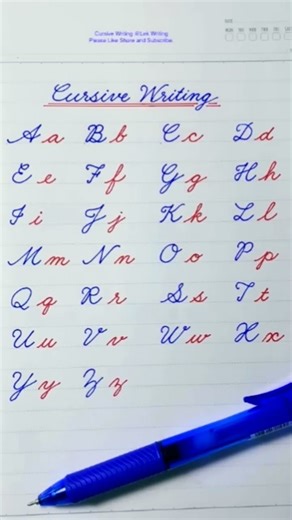 Cursive Writing @Lek Writing
Please Like Share and Subscribe
Cursive Writing
A a B b C c D d
E e F f G g H h
I i J j K k L l
M m N n O o P p
Q q R r S s T t
U u V v W w X x
Y y Z z